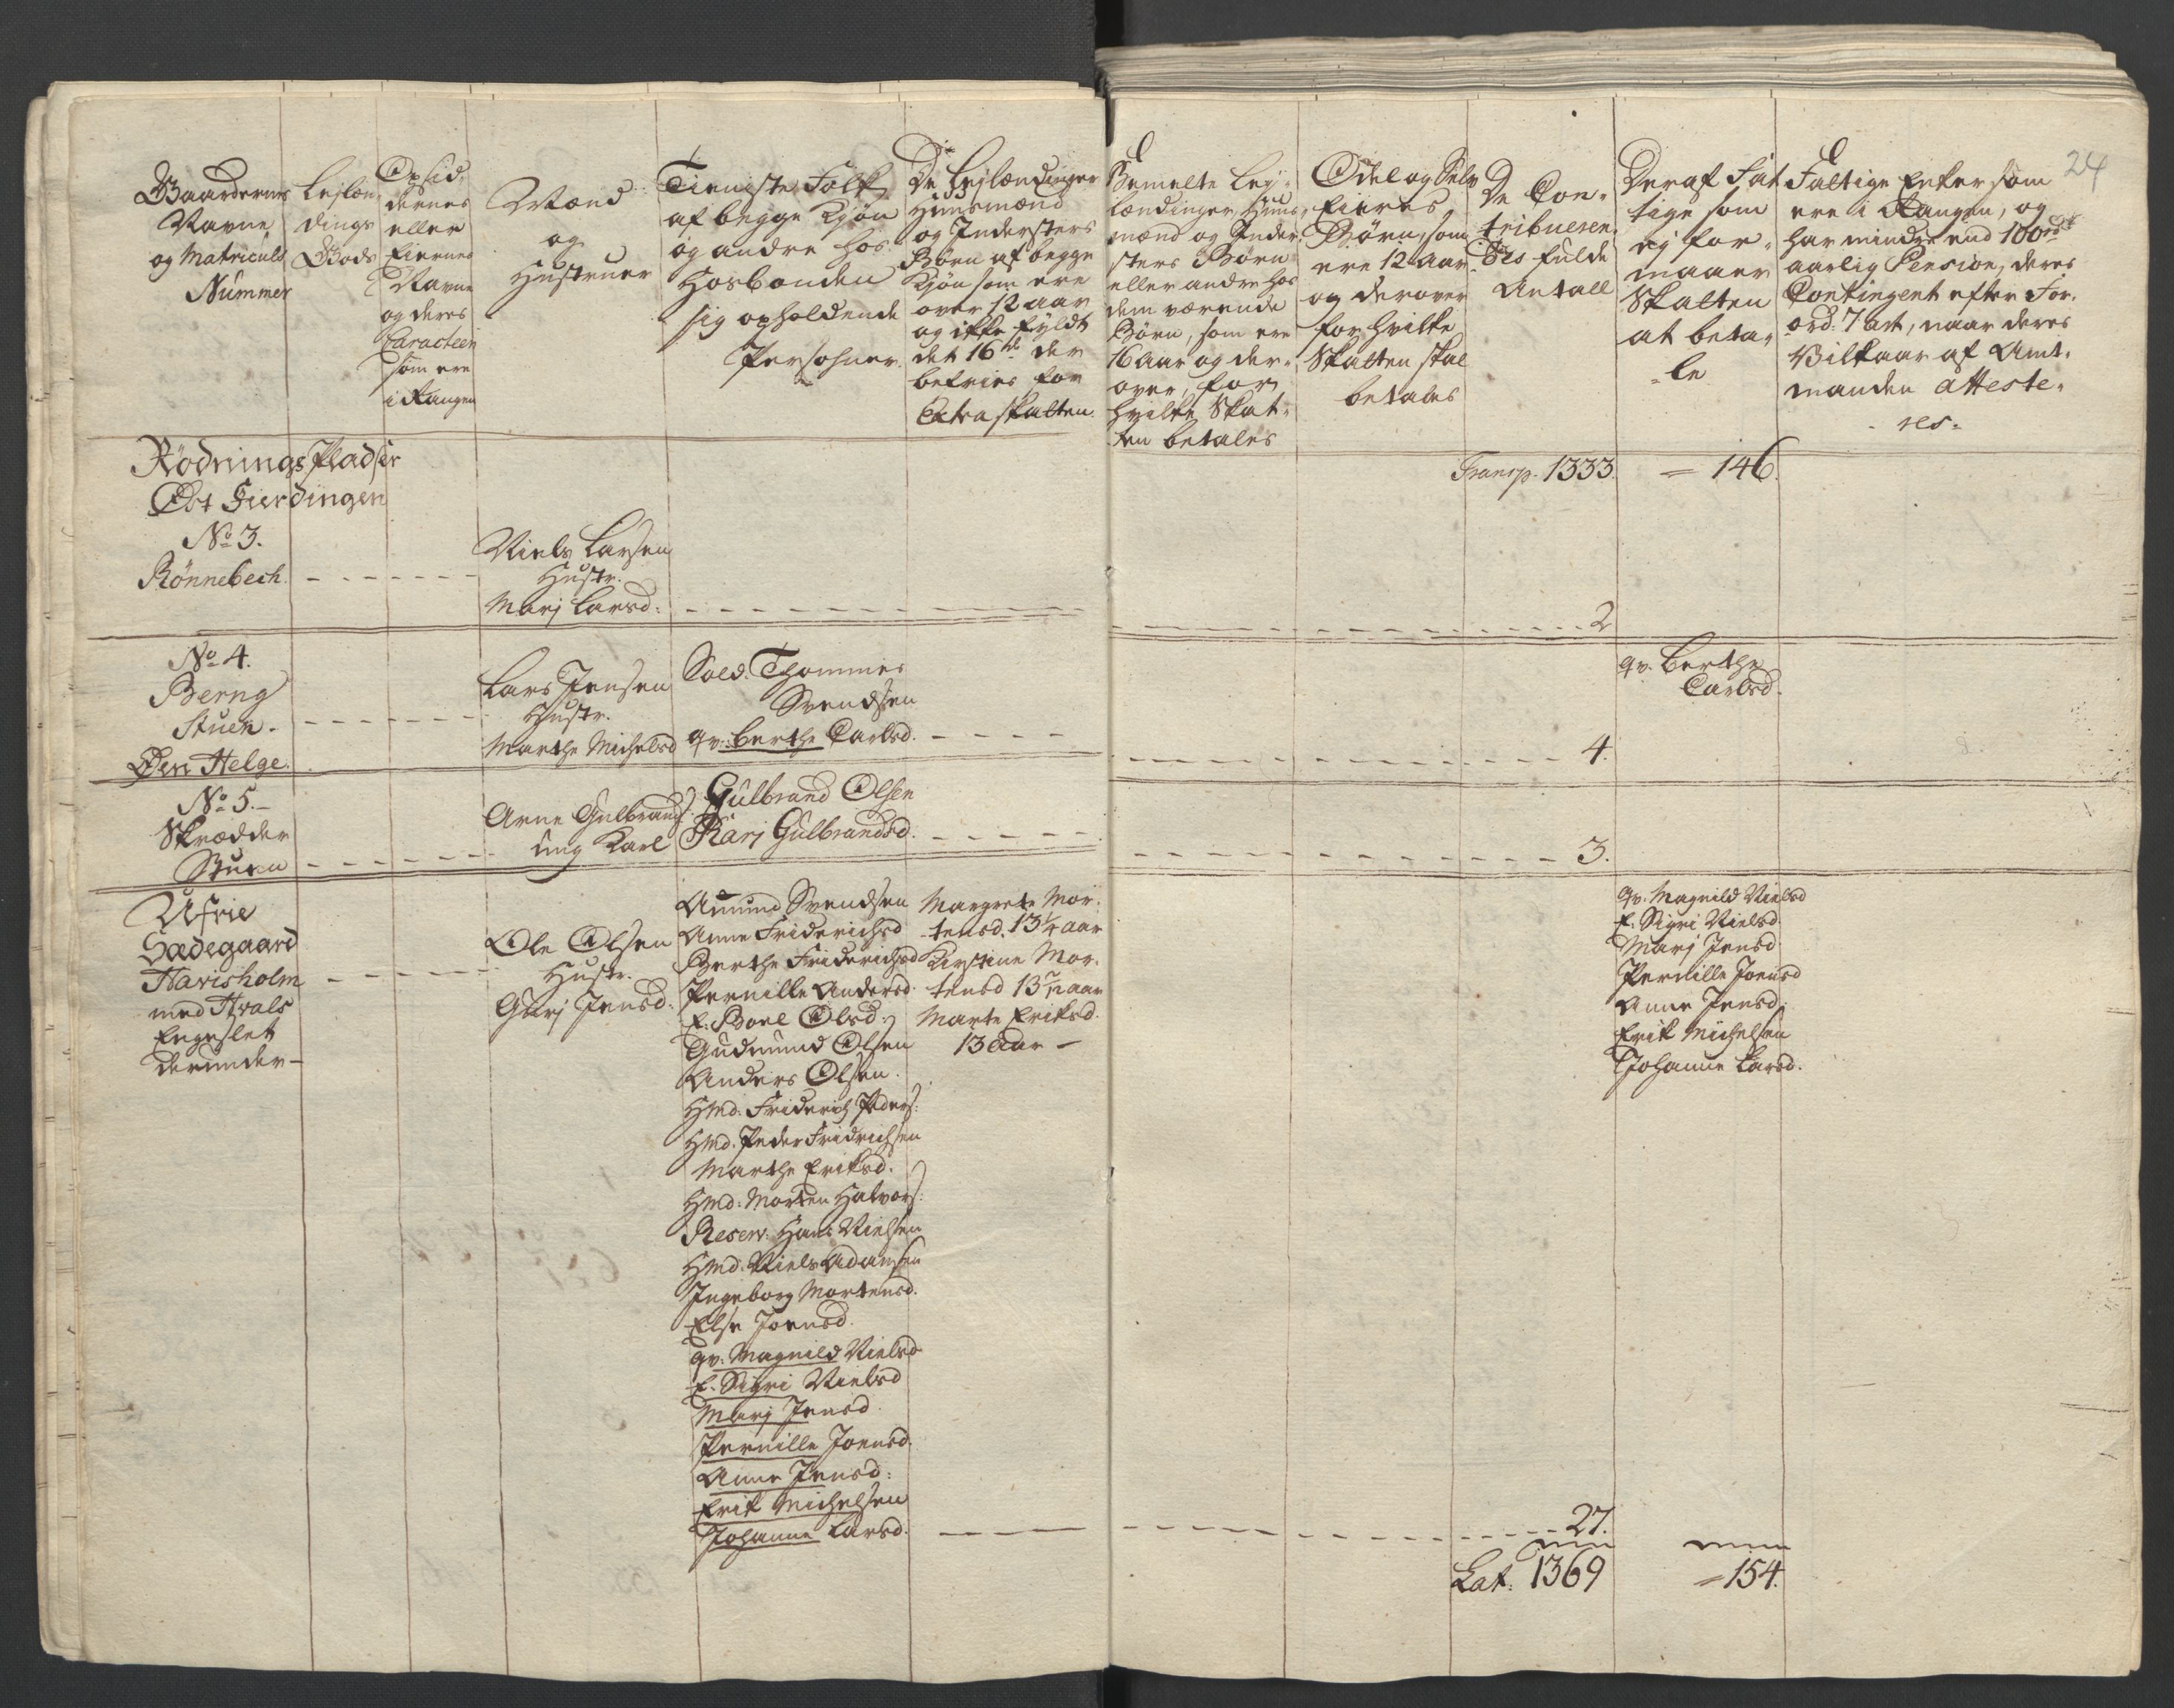 24
Gaardernes
Navne,
og Matriculs
Nummer
Leylæn
dings
Gods
Opsid,
dernes
eller
Eiernes
Navne
og deres
Caracteer
som ere
i Rangen
Mænd
og
Hustruer
Tieniste Folk
af begge Kjøn
og andre hos
Hosbonden
sig opholdende
Persohner.
De Lejlændinger
Huusmænd
og Indersters
Børn af begge
Kjøn som ere
over 12 aar
og ikke fyldt
det 16de der
befries for
Extraskatten.
Bemelte Ley-
lændinger, Huus-
mænd og Inder-
sters Børn
eller andre hos
dem værende
Børn, som ere
16 Aar og der-
over, for
hvilke Skat-
ten betales
Odel og Selv
Eieres
Børn, som
ere 12 Aar
og derover
for hvilke
Skatten skal
betales
De Con-
tribueren-
des fulde
Antall
Deraf Fat
tige som
ej for-
maaer
Skatten
at beta-
le
Faltige Enker som
ere i Rangen, og
har mindre end 100 rdr
aarlig Pension, deres
Contingent efter For-
ord: 7 art, naar deres
Vilkaar af Amt-
manden atteste-
res.
Rødnings Pladser
Øst Fierdingen
Transp. 1333. = 146.
No 3.
Rønnebech.
Niels Larsen
Hustr.
Marj Larsd:
2
No 4.
Berng
Stuen.
Øen Helge.
Lars Jensen
Hustr.
Marthe Michelsd
Sold. Thommes
Svendsen
qv: Berthe Carlsd.
4.
qv. Berthe
Carlsd.
No 5.
Skrædder
Stuen
Arne Gulbrands
ung Karl
Gulbrand Olsen
Karj Gulbrandsd.
3.
Ufrie
Sædegaard
Havisholm
med Hvals
Engeslet
derunder
Ole Olsen
Hustr.
Guri Jensd:
Amund Svendsen
Anne Friderichsd
Berthe Friderichsd
Pernille Andersd.
E. Boel Olsd:
Gudmund Olsen
Anders Olsen.
Hmd: Friderich Peders:
Hmd. Peder Fridrichsen
Marthe Eriksd.
Hmd: Morten Halvors:
Reserv: Hans Nielsen
Hmd. Niels Adamsen
Ingeborg Mortensd.
Else Joensd.
qv. Magnild Nielsd
E. Sigri Nielsd
Marj Jensd.
Pernille Joensd.
Anne Jensd:
Erik Michelsen
Johanne Larsd.
Margrete Mor-
tensd. 13 1/4 aar
Kirstine Mor-
tensd 13 7/12 aar
Marte Eriksd.
13 aar
qv. Magnild Nielsd
E. Sigri Nielsd.
Marj Jensd.
Pernille Joensd
Anne Jensd:
Erik Michelsen
Johanne Larsd.
27.
Lat. 1369 = 154.